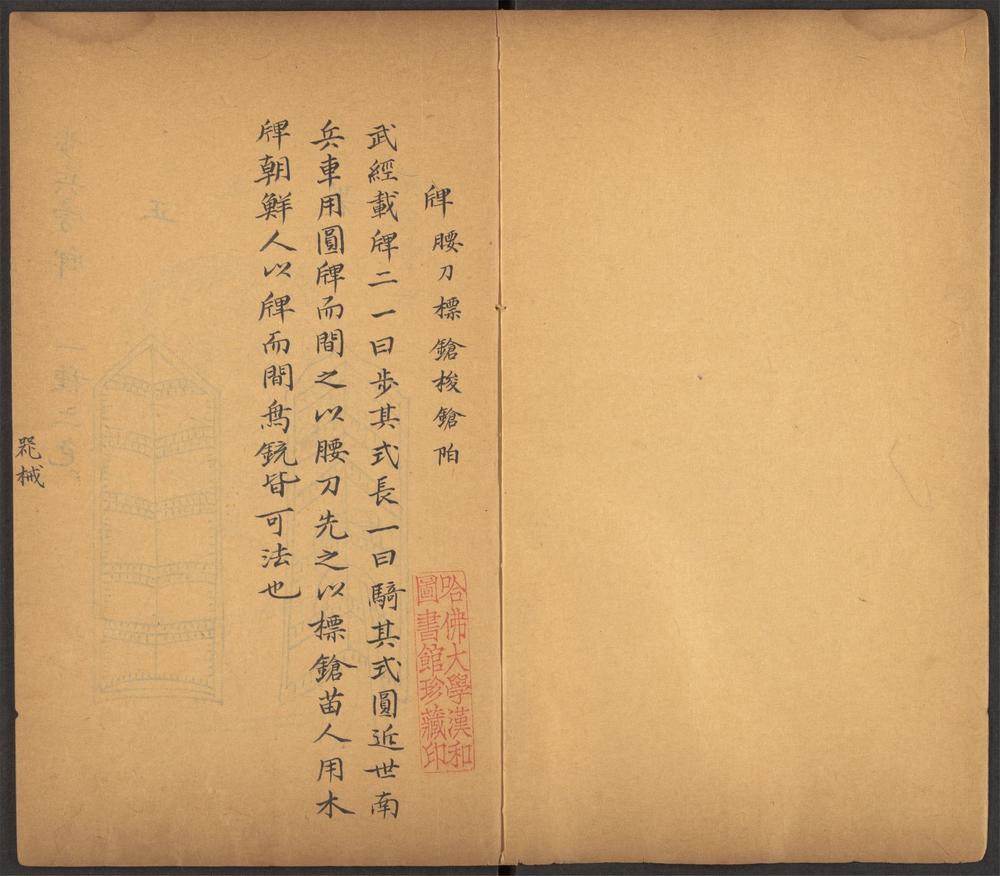 牌腰刀標鎗梭鎗陌
武經載牌二一曰步其式長一曰騎其式圓近世南
兵車用圓牌而間之以腰刀先之以標鎗苗人用木
牌朝鮮人以牌而間鳥銃皆可法也
噐械
哈佛大學漢和
圖書館珍藏印